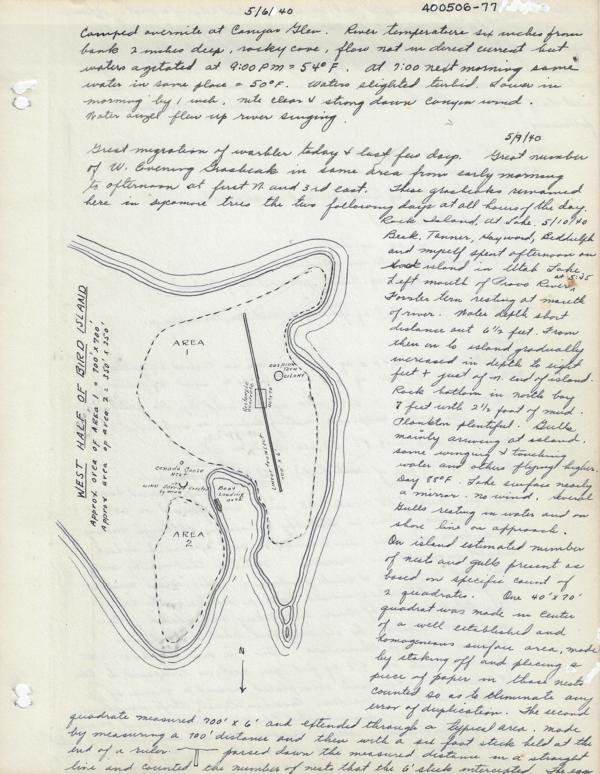 5/6/40
400506-77
Camped overnite at Canyon Glen. River temperature six inches from
bank 2 inches deep, rocky cove, flow not in direct current but
waters agetated at 9:00 PM = 54° F. At 7:00 next morning same
water in same place = 50° F. Waters slighted turbid. Lower in
morning by 1 inch. nite clear & strong down canyon wind.
Water ouzel flew up river singing.
5/9/40
Great migration of warbler today & last few days. Great number
of W. Evening Grosbeak in same area from early morning
to afternoon at first N. and 3rd east. These grosbeaks remained
here in sycamore trees the two following days at all hours of the day.
Rock Island, Ut Lake, 5/10/40
Beck, Tanner, Hayward, Beddulph
and myself spent afternoon on
island in Utah Lake
Left mouth of Provo River, at 5:25
Forster tern resting at mouth
of river. Water depth short
distance out 6 1/2 feet. From
then on to island gradually
increased in depth to eight
feet + just of N. end of island.
Rock bottom in north bay
7 feet with 2 1/2 foot of mud.
Plankton plentiful. Gulls
mainly arriving at island.
some winging & touching
water and others flying higher.
Day 88° F. Lake surface nearly
a mirror. no wind. Several
Gulls resting in water and on
shore line on approach.
On island estimated number
of nests and gulls present as
based on specific count of
2 quadrates. One 40' x 70'
quadrat was made in center
of a well established and
homogeneous surface area, made
by staking off and placing a
piece of paper in those nests
counted so as to eliminate any
error of duplication. The second
quadrate measured 700' x 6' and extended through a typical area, made
by measuring a 700' distance and then with a six foot stick held at the
end of a ruler passed down the measured distance in a straight
line and counted the number of nests that the 6' stick intercepted. The
WEST HALF OF BIRD ISLAND
Approx area of AREA 1 = 700' x 700'
Approx area of area 2 = 350' x 250'
AREA
1
CASPIAN
TERN
COLONY
Rectangle
Quadrate
40' x 70'
Linear transect
CANADA GOOSE
NEST
Boat
Landing
AREA
2
N